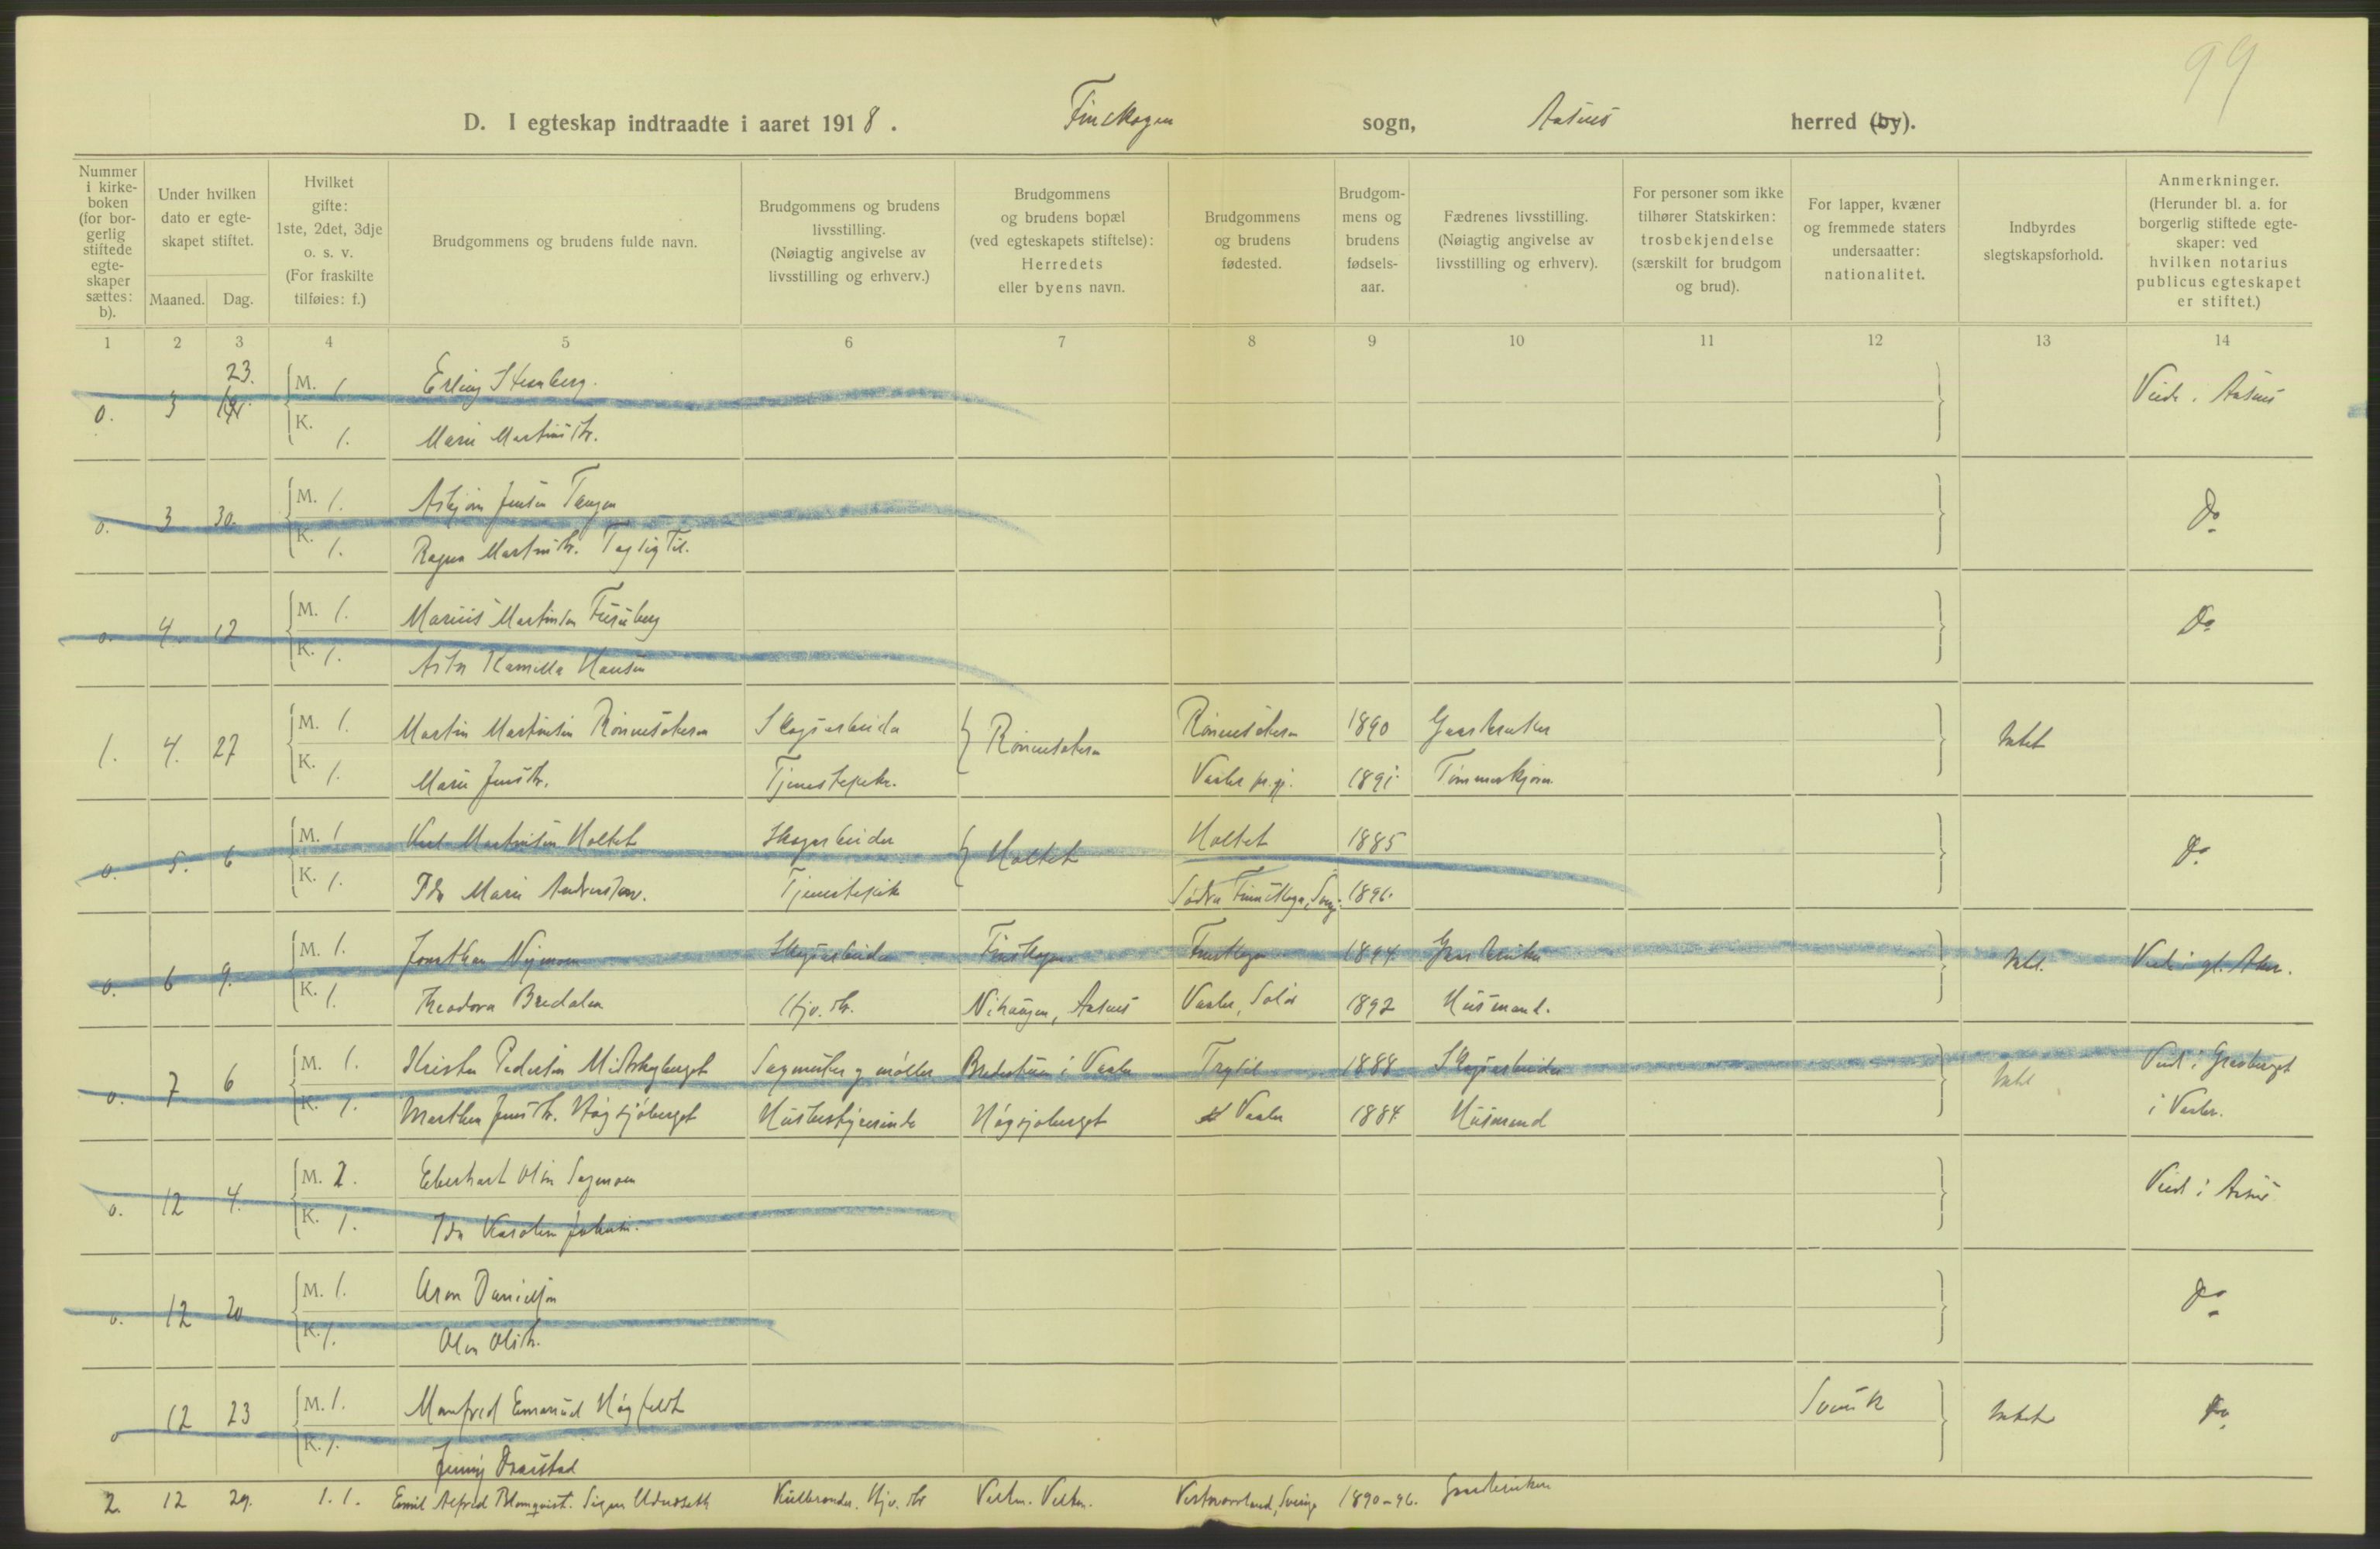 99
D. I egteskap indtraadte i aaret 1918. Finskogen sogn, Aasnes herred (by).
Nummer i kirke- boken (for bor- gerlig stiftede egte- skaper sættes: b).
Under hvilken dato er egte- skapet stiftet.
Maaned. Dag.
Hvilket gifte: 1ste, 2det, 3dje o. s. v. (For fraskilte tilføies: f.)
Brudgommens og brudens fulde navn.
Brudgommens og brudens livsstilling. (Nøiagtig angivelse av livsstilling og erhverv.)
Brudgommens og brudens bopæl (ved egteskapets stiftelse): Herredets eller byens navn.
Brudgommens og brudens fødested.
Brudgom- mens og brudens fødsels- aar.
Fædrenes livsstilling. (Nøiagtig angivelse av livsstilling og erhverv).
For personer som ikke tilhører Statskirken: trosbekjendelse (særskilt for brudgom og brud).
For lapper, kvæner og fremmede staters undersaatter: nationalitet.
Indbyrdes slegtskapsforhold.
Anmerkninger. (Herunder bl. a. for borgerlig stiftede egte- skaper: ved hvilken notarius publicus egteskapet er stiftet.)
1 2 3 4 5 6 7 8 9 10 11 12 13 14
23.
0. 3 M. 1. Erling Stenberg. Viede i Aasnes
K. 1. Marie Martinsdtr.
0. 3 30. M. 1. Asbjørn Jensen Tangen Do
K. 1. Ragna Martinsdtr.
0. 4. 12 M. 1. Marius Martinsen Furuberg Do
K. 1. Asta Kamilla Hansen
1. 4. 27 M. 1. Martin Martinsen Rönnesäteren Skogsarbeider Rönnesäteren Rönnesäteren 1890 Gaardbruker Intet
K. 1. Marie Jensdtr. Tjenestepike. Vaaler pr.gj. 1891.
0. 5. 6 M. 1. Karl Martinsen Holtet Skogsarbeider Holtet Holtet 1885 Do
K. 1. Ida Marie Tjenestepike Södra Finnskoga, 1896.
0. 6 9. M. 1. Jonathan Nymoen Skogsarbeider Finskogen Finskogen 1894. Gaardbruker Intet.
K. 1. Theodora Bredalen Hjv. dtr. Aasnes Vaaler, Solør 1892 Husmand.
0. 7 6 M. 1. Kristen Pedersen Midtskogberget Sagmester og møller i Vaaler Trysil 1888 Skogsarbeider Intet Viede i Gravberget
K. 1. Marthea Jensdtr. Högsjöberget Husbestyrerinde Högsjöberget Vaaler 1884. Husmand i Vaaler.
0. 12 4. M. 2. Eberhart Olsen Sagmoen Viede i Aasnes
K. 1. Ida Karoline Johansen.
0. 12 20 M. 1. Aron Danielsen Do
K. 1. Olsdtr.
0 12 23 M. 1. Manfred Emanuel Högfeldt Svensk Intet Do
K. 1. Jenny
2. 12 29. 1. 1. Emil Alfred Blomqvist. Signe Hjv. dtr Sverige 1890-96. Gaardbruker